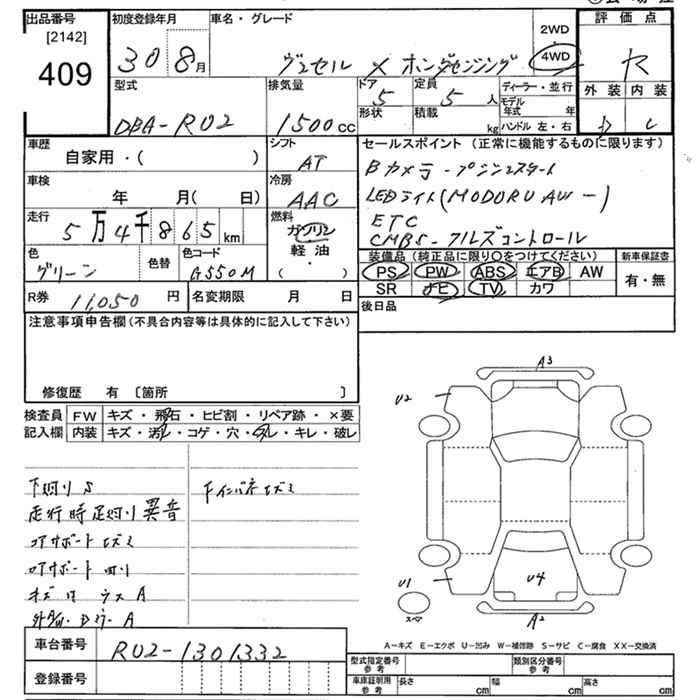 出品番号
[2142]
409
初度登録年月
30 8月
車名・グレード
ヴェゼル × ホンダセンシング
2WD
・
4WD
評価点
外装 内装
型式
DBA-RU2
排気量
1500cc
ドア
5
定員
5人
形状
積載
kg
ディーラー・並行
モデル
年式 年
ハンドル 左・右
車歴
自家用・( )
シフト
AT
セールスポイント (正常に機能するものに限ります)
Bカメラ・プッシュスタート
LEDライト(MODORU AW ー)
ETC
CMBS・クルズコントロール
車検
年 月( 日)
冷房
AAC
走行
5万4千865km
燃料
ガソリン
軽油
( ・ )
色
グリーン
色替
色コード
G550M
装備品 (純正品に限り○をつけてください)
PS PW ABS エアB AW
SR ナビ TV カワ
新車保証書
有・無
R券 11,050円
名変期限 月 日
後日品
注意事項申告欄(不具合内容等は具体的に記入して下さい)
修復歴 有 〔箇所 〕
検査員 FW キズ・飛石・ヒビ割・リペア跡・×要
記入欄 内装 キズ・汚レ・コゲ・穴・スレ・キレ・破レ
下廻りS
走行時足廻り異音
コアサポートヒズミ
下インパネヒズミ
A3
U2
U1
U4
A2
スペア
A-キズ E-エクボ U-凹み W-補修跡 S-サビ C-腐食 XX-交換済
車台番号
RU2-1301332
登録番号
型式指定番号
参考
類別区分番号
参考
車庫証明用
参考
長さ cm 幅 cm 高さ cm